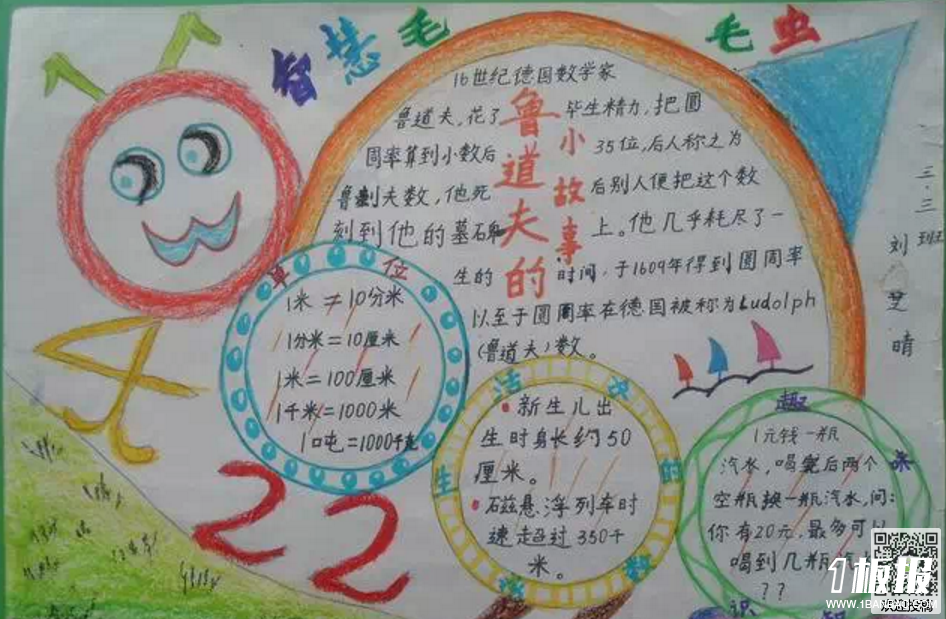 智慧毛毛虫
16世纪德国数学家
鲁道夫的
小故事
鲁道夫,花了毕生精力,把圆
周率算到小数后35位,后人称之为
鲁道夫数,他死后别人便把这个数
刻到他的墓碑上。他几乎耗尽了一
生的时间,于1609年得到圆周率
以至于圆周率在德国被称为Ludolph
(鲁道夫)数。
三.三班
刘
晴
单位
1米=10分米
1分米=10厘米
1米=100厘米
1千米=1000米
1吨=1000千克
生活
的数
•新生儿出
生时身长约50
厘米。
•磁悬浮列车时
速超过350千
米。
趣
识
1元钱一瓶
汽水,喝完后两个
空瓶换一瓶汽水,问:
你有20元,最多可以
喝到几瓶汽
??
1板报
WWW.1BANBAO.COM
欢迎投稿